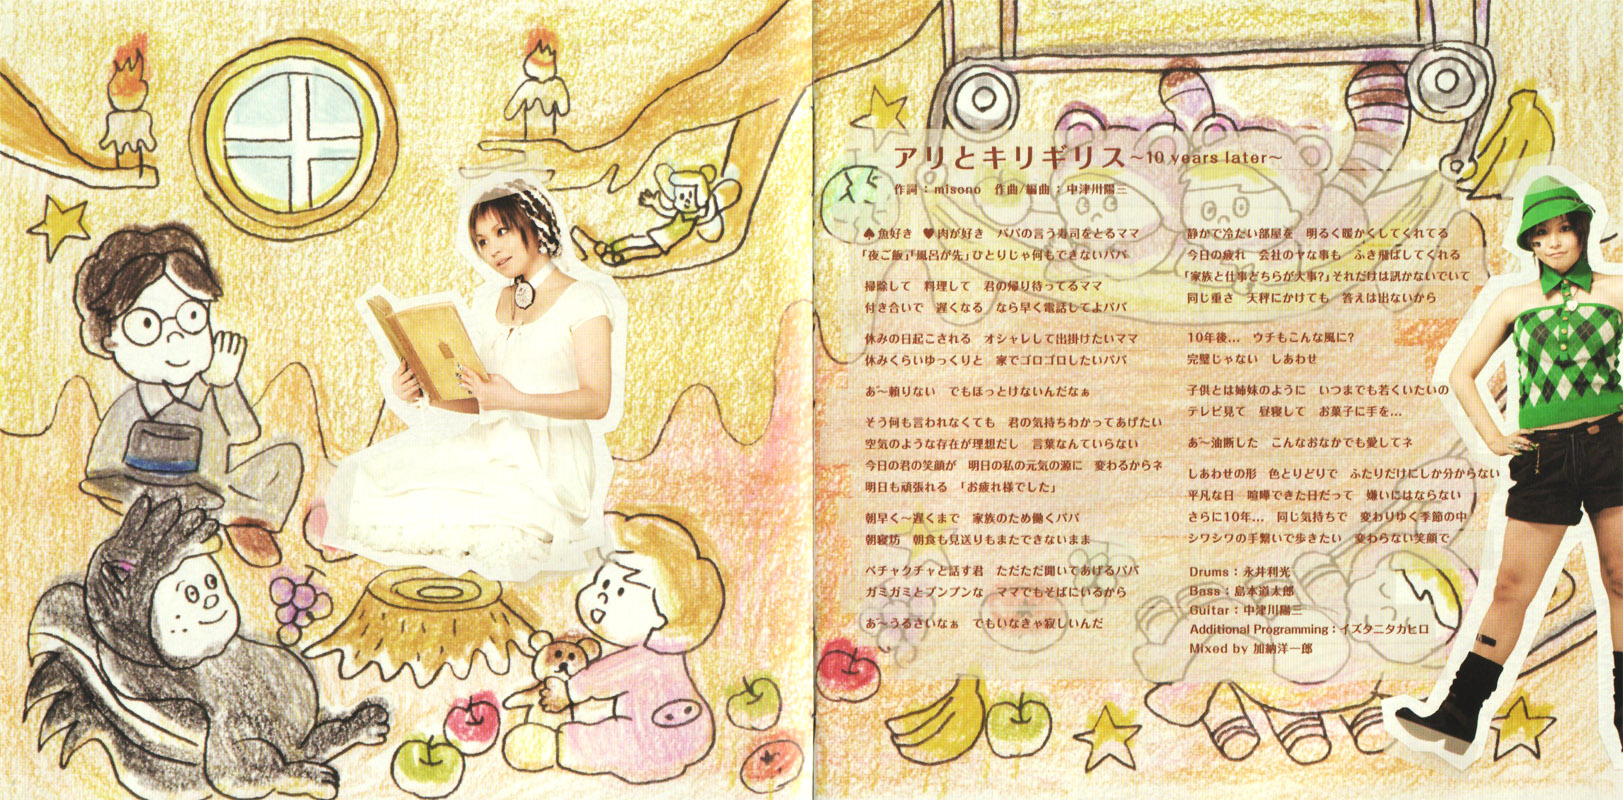 アリとキリギリス～10 years later～
作詞：misono　作曲/編曲：中津川陽三
♠魚好き　♥肉が好き　パパの言う寿司をとるママ
「夜ご飯」「風呂が先」ひとりじゃ何もできないパパ
掃除して　料理して　君の帰り待ってるママ
付き合いで　遅くなる　なら早く電話してよパパ
休みの日起こされる　オシャレして出掛けたいママ
休みくらいゆっくりと　家でゴロゴロしたいパパ
あ～頼りない　でもほっとけないんだなぁ
そう何も言われなくても　君の気持ちわかってあげたい
空気のような存在が理想だし　言葉なんていらない
今日の君の笑顔が　明日の私の元気の源に　変わるからネ
明日も頑張れる　「お疲れ様でした」
朝早く～遅くまで　家族のため働くパパ
朝寝坊　朝食も見送りもまたできないまま
ペチャクチャと話す君　ただただ聞いてあげるパパ
ガミガミとプンプンな　ママでもそばにいるから
あ～うるさいなぁ　でもいなきゃ寂しいんだ
静かで冷たい部屋を　明るく暖かくしてくれてる
今日の疲れ　会社のヤな事も　ふき飛ばしてくれる
「家族と仕事どちらが大事？」それだけは訊かないでいて
同じ重さ　天秤にかけても　答えは出ないから
10年後…　ウチもこんな風に？
完璧じゃない　しあわせ
子供とは姉妹のように　いつまでも若くいたいの
テレビ見て　昼寝して　お菓子に手を…
あ～油断した　こんなおなかでも愛してネ
しあわせの形　色とりどりで　ふたりだけにしか分からない
平凡な日　喧嘩できた日だって　嫌いにはならない
さらに10年…　同じ気持ちで　変わりゆく季節の中
シワシワの手繋いで歩きたい　変わらない笑顔で
Drums：永井利光
Bass：島本道太郎
Guitar：中津川陽三
Additional Programming：イズタニタカヒロ
Mixed by 加納洋一郎